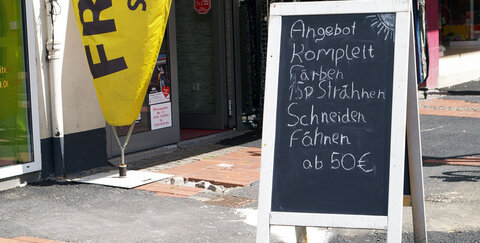 Angebot
Komplett
Färben
150 Strähnen
Schneiden
Föhnen
ab 50€
FR
S